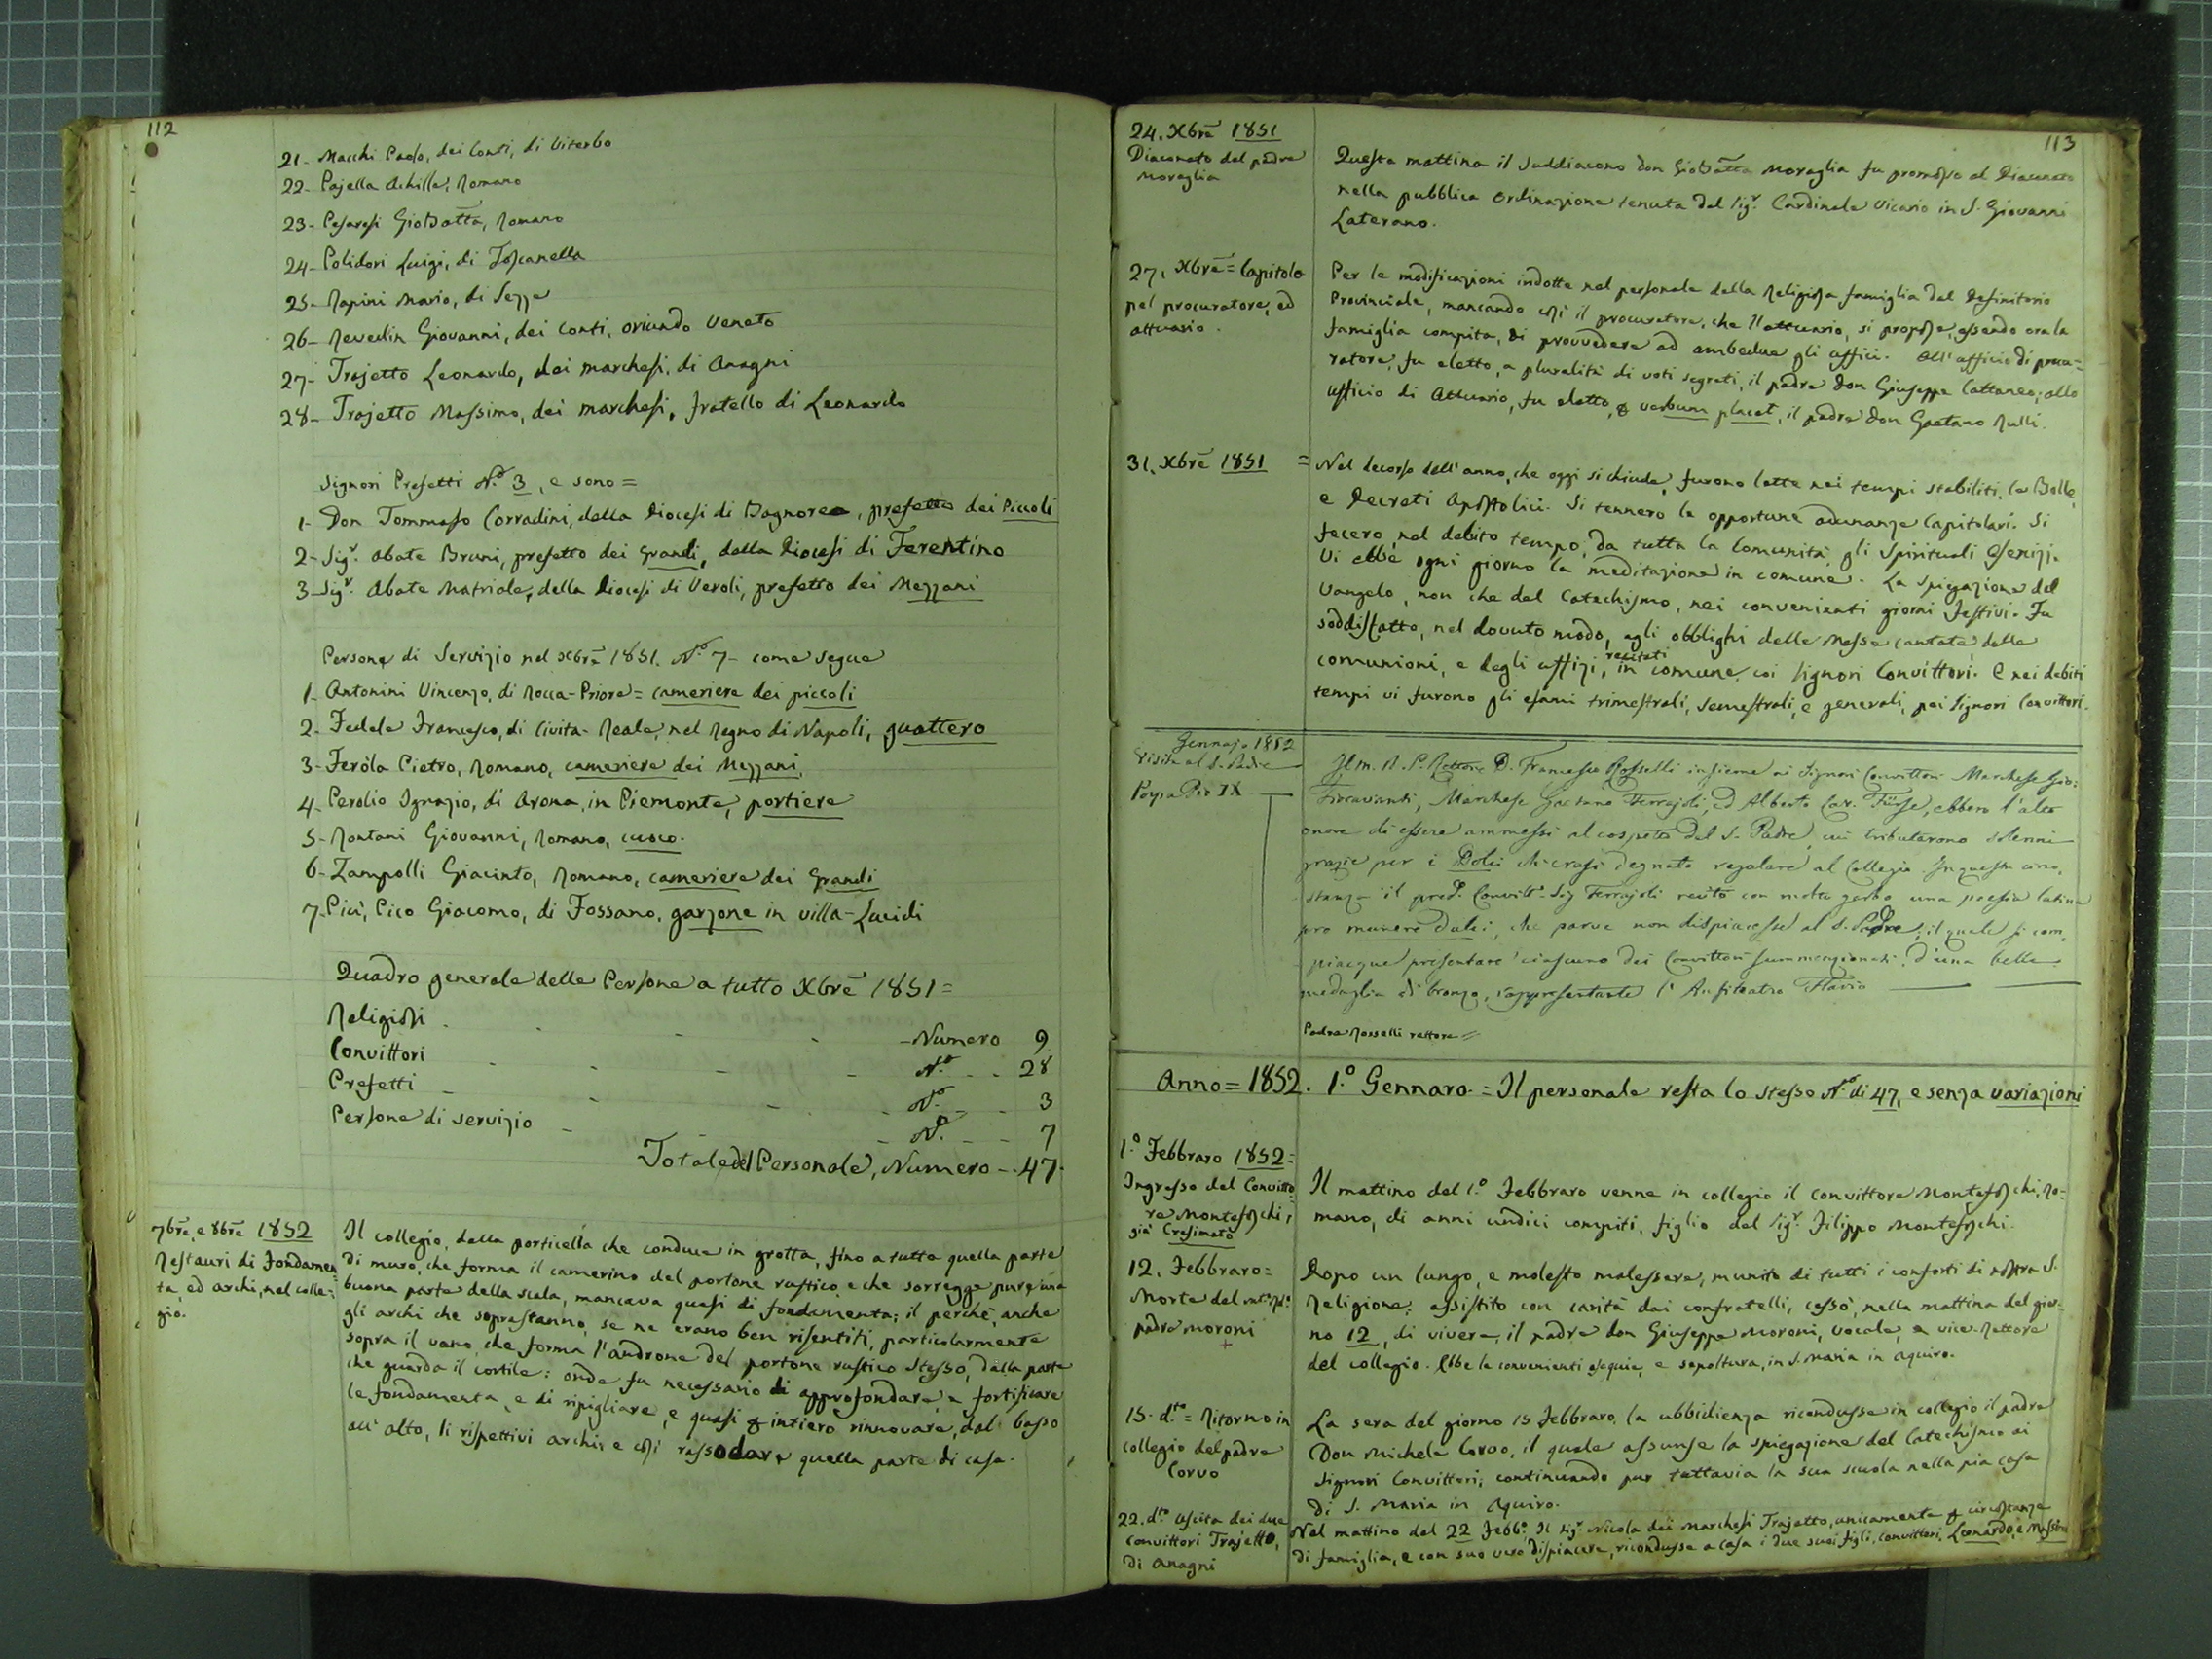 112
21- Macchi Paolo, dei Conti, di Viterbo
22- Pajella Achille, Romano
23- Pesaresi GioBatta, Romano
24- Polidori Luigi, di Toscanella
25- Rapini Mario, di Sezze
26- Revedin Giovanni, dei Conti, oriundo Veneto
27- Trajetto Leonardo, dei marchesi, di Anagni
28- Trajetto Massimo, dei marchesi, fratello di Leonardo
Signori Prefetti N.º 3, e sono =
1- Don Tommaso Corradini, della Diocesi di Bagnorea, prefetto dei Piccoli
2- Sig.r Abate Bruni, prefetto dei Grandi, della Diocesi di Ferentino
3- Sig.r Abate Matriale, della Diocesi di Veroli, prefetto dei Mezzani
Persone di Servizio nel Xbre 1851. N.º 7- come segue
1- Antonini Vincenzo, di Rocca-Priora = cameriere dei piccoli
2- Fedele Francesco, di Civita-Reale, nel Regno di Napoli, guattero
3- Feròla Pietro, Romano, cameriere dei Mezzani
4- Perolio Ignazio, di Arona, in Piemonte, portiere
5- Montani Giovanni, Romano, cuoco.
6- Zampolli Giacinto, Romano, cameriere dei Grandi
7- Pico Giacomo, di Fossano, garzone in villa-Lucidi
Quadro generale delle Persone a tutto Xbre 1851 =
Religiosi - Numero 9
Convittori - N.º - 28
Prefetti - N.º - 3
Persone di servizio - N.º - 7
Totale del Personale, Numero - 47.
7bre, e 8bre 1852
Restauri di Fondamen=
ta, ed archi, nel colle=
gio.
Il collegio, dalla porticella che conduce in grotta, fino a tutta quella parte
di muro, che forma il camerino del portone rustico, e che sorregge pure una
buona parte della scala, mancava quasi di fondamenta; il perchè, anche
gli archi che soprastanno, se ne erano ben risentiti, particolarmente
sopra il vano, che forma l'androne del portone rustico stesso, dalla parte
che guarda il cortile: onde fu necessario di approfondare, e fortificare
le fondamenta, e di ripigliare, e quasi intiero rinnovare, dal basso
all'alto, li rispettivi archi, e così rassodare quella parte di casa.
113
24. Xbre 1851
Diaconato del padre
Moraglia
Questa mattina il Suddiacono don GioBatta Moraglia fu promosso al Diaconato
nella pubblica Ordinazione tenuta dal Sig.r Cardinale Vicario in S. Giovanni
Laterano.
27. Xbre = Capitolo
pel procuratore, ed
attuario.
Per le modificazioni indotte nel personale della Religiosa famiglia dal Definitorio
Provinciale, mancando così il procuratore, che l'attuario, si propose, essendo ora la
famiglia compita, di provvedere ad ambedue gli uffici. All'ufficio di procu=
ratore, fu eletto, a pluralità di voti segreti, il padre don Giuseppe Cattaneo; allo
ufficio di Attuario, fu eletto, verbum placet, il padre don Gaetano Rulli.
31. Xbre 1851 =
Nel decorso dell'anno, che oggi si chiude, furono lette nei tempi stabiliti, le Bolle,
e Decreti Apostolici. Si tennero le opportune adunanze Capitolari. Si
fecero, nel debito tempo, da tutta la Comunità gli Spirituali Esercizj.
Vi ebbe ogni giorno la meditazione in comune. La Spiegazione del
Vangelo, non che del Catechismo, nei convenienti giorni festivi. Fu
soddisfatto, nel dovuto modo, agli obblighi delle Messe cantate delle
comunioni, e degli uffizi, recitati in comune coi Signori Convittori. E nei debiti
tempi vi furono gli esami trimestrali, semestrali, e generali, pei Signori Convittori.
Gennajo 1852
Visita al S. Padre
Papa Pio IX
Il M. R. P. Rettore D. Francesco Rosselli insieme ai Signori Convittori Marchese Gio:
Fioravanti, Marchese Gaetano Ferrajoli, ed Alberto Cav. Fürse, ebbero l'alto
onore di essere ammessi al cospetto del S. Padre, cui tributarono solenni
grazie per i Dolci ch'erasi degnato regalare al Collegio. In questa circo,
stanza il pred.º Convitt.e Sig Ferrajoli recitò con molto garbo una poesia latina
pro munere dulci, che parve non dispiacesse al S. Padre; il quale si com,
piacque presentare ciascuno dei Convittori summenzionati, d'una bella
medaglia di bronzo, rappresentante l'Anfiteatro Flavio
Padre Rosselli rettore =
Anno = 1852. 1.º Gennaro = Il personale resta lo stesso N.º di 47, e senza variazioni
1.º Febbraro 1852 =
Ingresso del Convitto=
re Montefoschi,
già Cresimato
Il mattino del 1.º Febbraro venne in collegio il convittore Montefoschi, Ro=
mano, di anni undici compiti, figlio del Sig.r Filippo Montefoschi.
12. Febbraro =
Morte del
padre Moroni
+
Dopo un lungo, e molesto malessere, munito di tutti i conforti di nostra S.
Religione: assistito con carità dai confratelli, cessò, nella mattina del gior=
no 12, di vivere, il padre don Giuseppe Moroni, vocale, e vice-Rettore
del collegio. Ebbe le convenienti esequie, e sepoltura, in S. Maria in Aquiro.
15. d.to = Ritorno in
collegio del padre
Corvo
La sera del giorno 15 Febbraro, la ubbidienza ricondusse in collegio il padre
Don Michele Corvo, il quale assunse la spiegazione del Catechismo ai
Signori Convittori; continuando pur tuttavia la sua scuola nella pia casa
di S. Maria in Aquiro.
22. d.to Uscita dei due
convittori Trajetto,
di Anagni
Nel mattino del 22 Febb.º Il Sig.r Nicola dei Marchesi Trajetto, unicamente circostanze
di famiglia, e con suo vero dispiacere, ricondusse a casa i due suoi figli, convittori, Leonardo, e Massimo